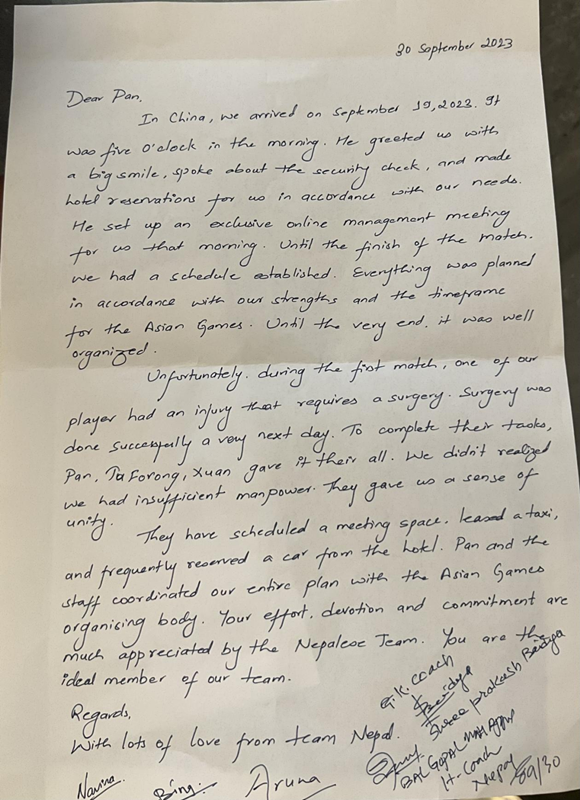 30 September 2023
Dear Pan,
In China, we arrived on September 19, 2023. It
was five O'clock in the morning. He greeted us with
a big smile, spoke about the security check, and made
hotel reservations for us in accordance with our needs.
He set up an exclusive online management meeting
for us that morning. Until the finish of the match.
we had a schedule established. Everything was planned
in accordance with our strengths and the timeframe
for the Asian Games. Until the very end, it was well
organized.
Unfortunately, during the first match, one of our
player had an injury that requires a surgery. Surgery was
done successfully a very next day. To complete their tasks,
Pan, Xuan gave it their all. We didn't realized
we had insufficient manpower. They gave us a sense of
unity.
They have scheduled a meeting space, leased a taxi,
and frequently reserved a car from the hotel. Pan and the
staff coordinated our entire plan with the Asian Games
organising body. Your effort, devotion and commitment are
much appreciated by the Nepalese Team. You are the
ideal member of our team.
Regards,
With lots of love from team Nepal.
G.K. Coach
Shree Prakash
BAL GOPAL MAHARJAN
H-Coach
Nepal
09/30
Aruna